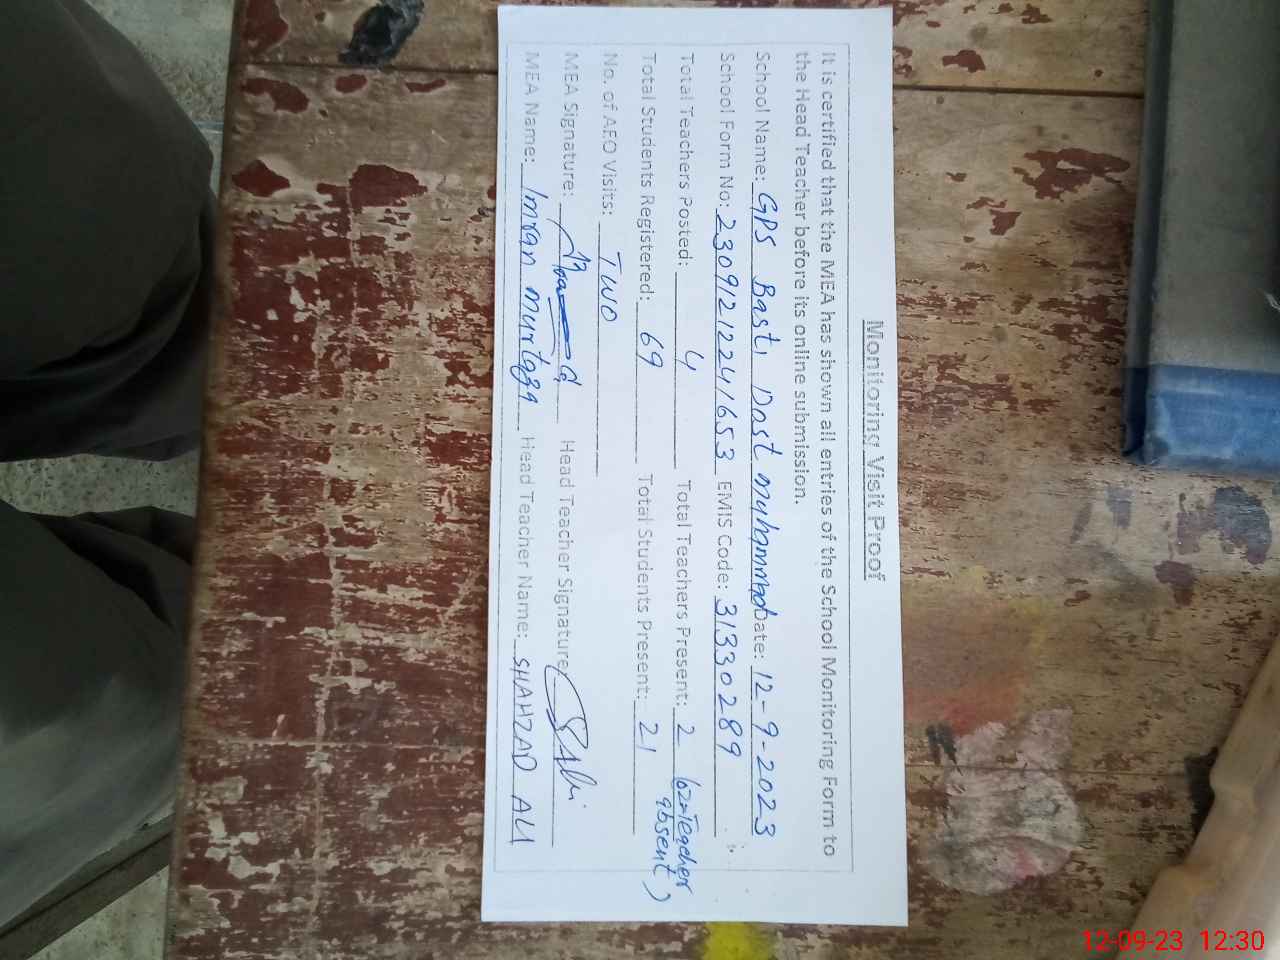 Monitoring Visit Proof
It is certified that the MEA has shown all entries of the School Monitoring Form to
the Head Teacher before its online submission.
School Name: GPS Basti Dost muhammad Date: 12-9-2023
School Form No: 230912122241653 EMIS Code: 31330289
Total Teachers Posted: 4 Total Teachers Present: 2 (02=Teacher absent)
Total Students Registered: 69 Total Students Present: 21
No. of AEO Visits: TWO
MEA Signature: Head Teacher Signature:
MEA Name: Imran murtaza Head Teacher Name: SHAHZAD ALI
12-09-23 12:30